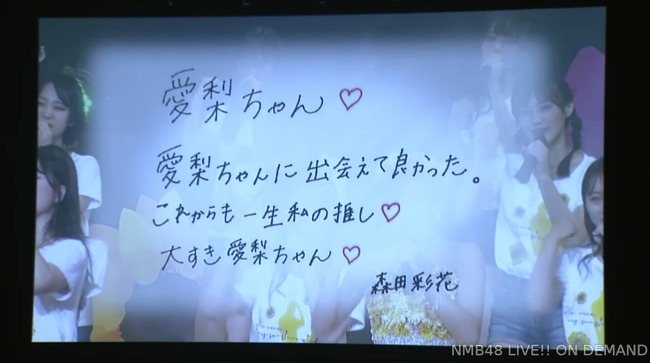 愛梨ちゃん♡
愛梨ちゃんに出会えて良かった。
これからも一生私の推し♡
大すき愛梨ちゃん♡
森田彩花
NMB48 LIVE!! ON DEMAND